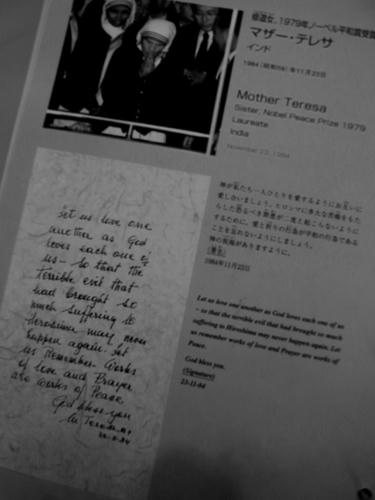 修道女、1979年ノーベル平和賞受賞
マザー・テレサ
インド
1984(昭和59)年11月23日
Mother Teresa
Sister, Nobel Peace Prize 1979
Laureate
India
November 23, 1984
神が私たち一人ひとりを愛するようにお互いに
愛し合いましょう。ヒロシマに多大な苦痛をもた
らした恐るべき罪悪が二度と起こらないように
するために。愛と祈りの行為が平和の行為である
ことを忘れないようにしましょう。
神の祝福がありますように。
(署名)
1984年11月23日
Let us love one another as God loves each one of us
– so that the terrible evil that had brought so much
suffering to Hiroshima may never happen again. Let
us remember works of love and Prayer are works of
Peace.
God bless you.
(Signature)
23-11-84
Let us love one
another as God
loves each one of
us – so that the
terrible evil that
had brought so
much suffering to
heroshima may never
happen again. Let
us Remember Works
of love and Prayer
are Works of Peace.
God bless you